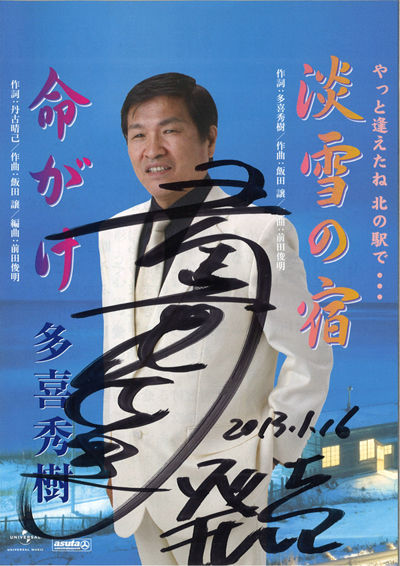 やっと逢えたね 北の駅で・・・
淡雪の宿
作詞:多喜秀樹 作曲:飯田 譲 編曲:前田俊明
命がけ
作詞:丹古晴己/作曲:飯田 譲/編曲:前田俊明
多喜秀樹
2013.1.16
UNIVERSAL
UNIVERSAL MUSIC
asuta